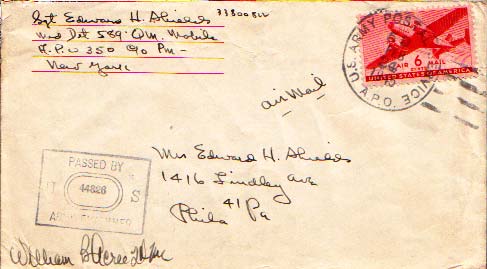 Sgt Edward H. Shields 33800812
Med Det 589 QM. Mobile
A.P.O 350 c/o Pm-
New York
U.S. ARMY POSTAL SERVICE
A.P.O.
AIR 6¢ MAIL
UNITED STATES OF AMERICA
air Mail
Mrs Edward H. Shields
1416 Lindley Ave
41 Pa
Phila
PASSED BY
U 44826 S
ARMY EXAMINER
William B Acree